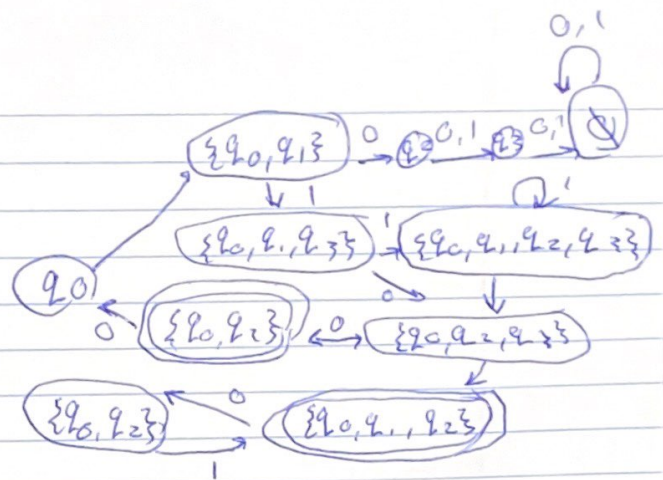 0, 1
{q0, q1} 0 q2 0, 1 q3 0, 1 ∅
1 1
{q0, q1, q3} 1 {q0, q1, q2, q3}
q0 0
0 {q0, q2} 0 {q0, q2, q3}
{q0, q2} 0 {q0, q1, q2}
1